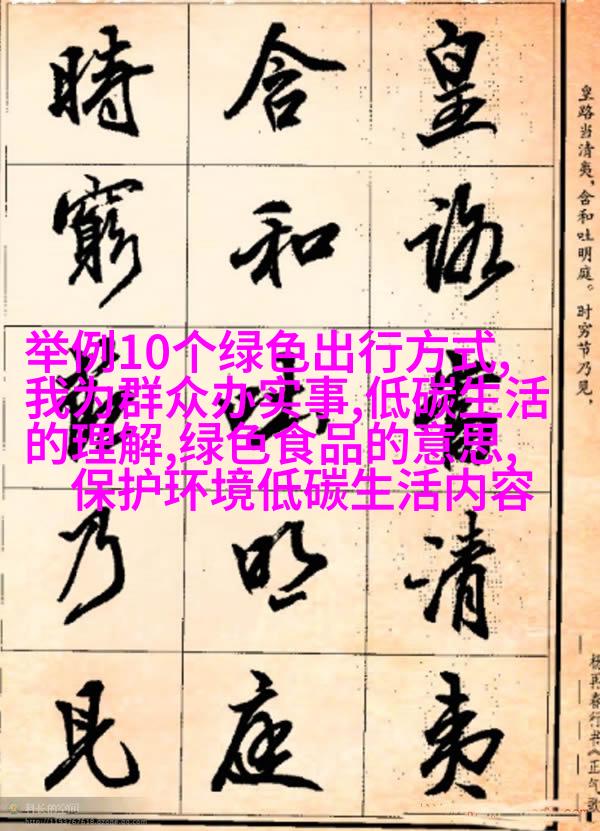 皇路当清夷,含和吐明庭。时穷节乃见,
杨再春行书《正气歌
皇路當清夷
含和吐明庭
時窮節乃見
举例10个绿色出行方式,
我为群众办实事,低碳生活
的理解,绿色食品的意思,
保护环境低碳生活内容
科长的空间